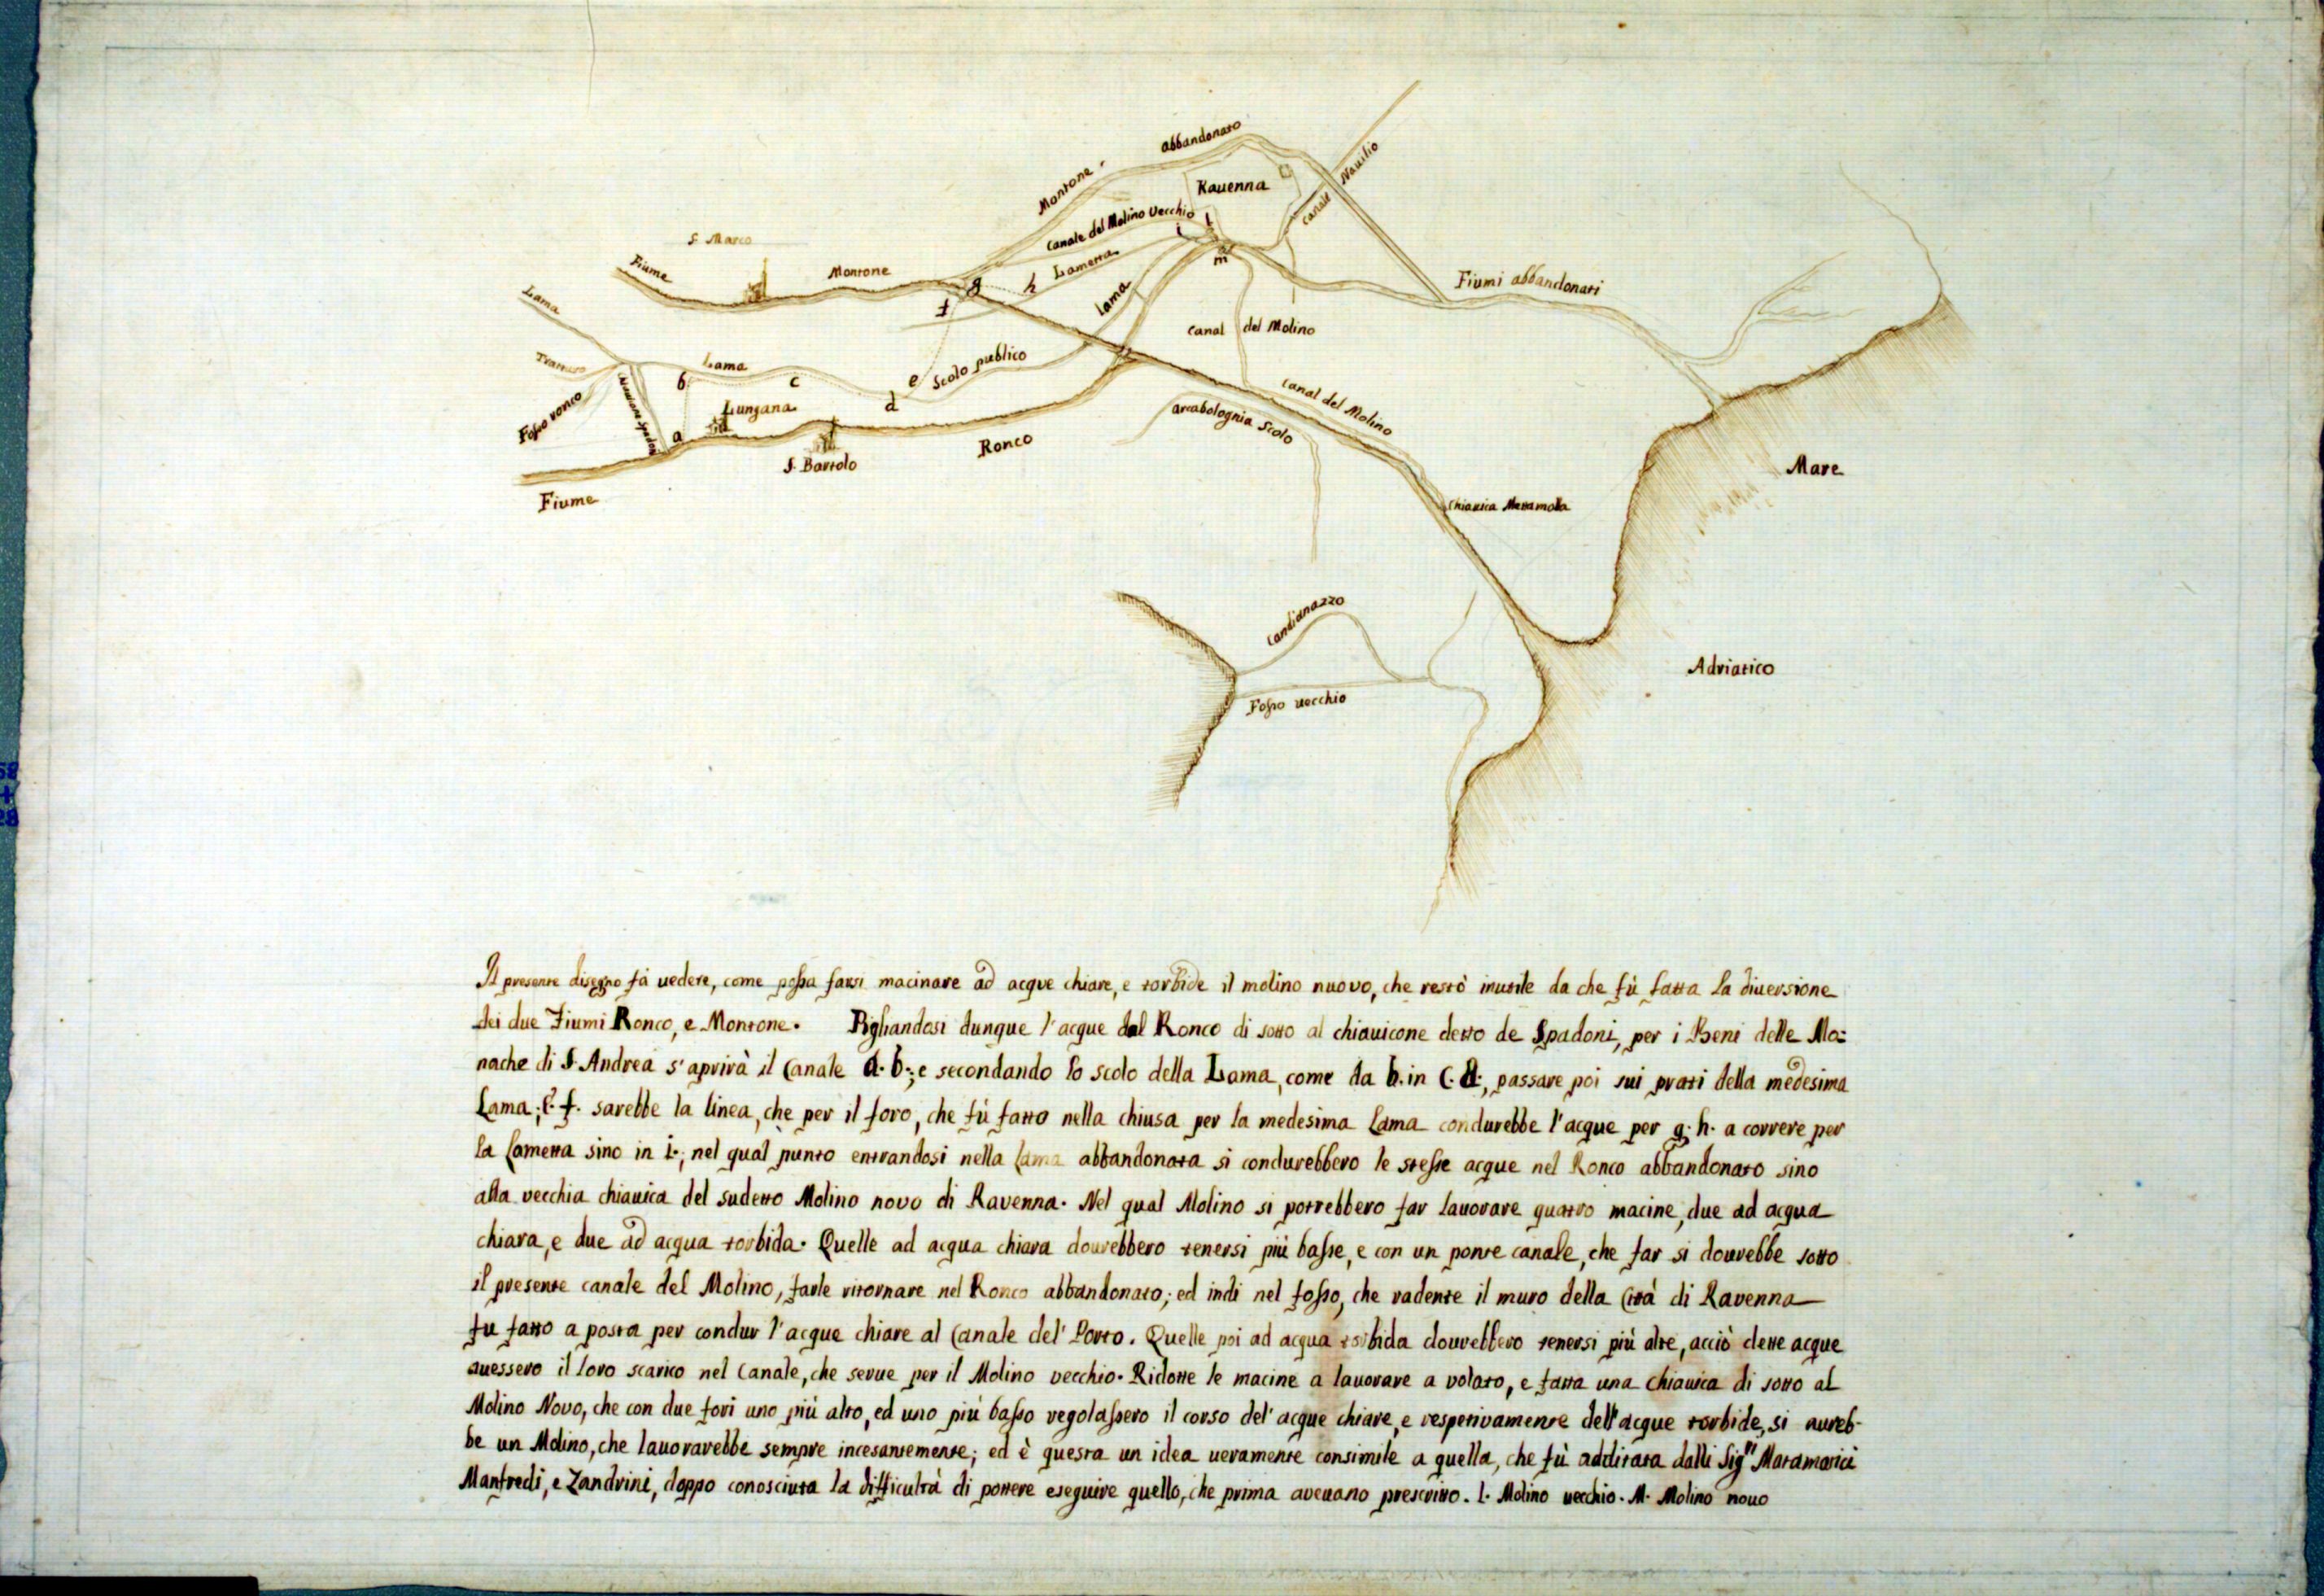 abbandonato
Montone
Canale Nauilio
Rauenna
Canale del Molino Vecchio
L
i
S. Marco
Fiume
Montone
Lametta
m
g
h
f
Lama
Fiumi abbandonati
Lama
Canal del Molino
Lama
Scolo publico
b
c
e
d
Fosso ronco
Lunzana
a
Canal del Molino
arcabolognia Scolo
Ronco
S. Bartolo
Mare
Fiume
Chiauica
Candianazzo
Adriatico
Fosso uecchio
Il presente disegno fà uedere, come possa farsi macinare ad acque chiare, e torbide il molino nuovo, che restò inutile da che fù fatta la diuersione
dei due Fiumi Ronco, e Montone. Pigliandosi dunque l'acque dal Ronco di sotto al chiauicone detto de Spadoni, per i Beni delle Mo:
nache di S. Andrea s'aprirà il Canale a. b.; e secondando lo scolo della Lama, come da b. in C. d:, passare poi sui prati della medesima
Lama; e. f. sarebbe la linea, che per il foro, che fù fatto nella chiusa per la medesima Lama condurebbe l'acque per g. h. a correre per
la Lametta sino in i.; nel qual punto entrandosi nella Lama abbandonata si condurebbero le stesse acque nel Ronco abbandonato sino
alla vecchia chiauica del sudetto Molino novo di Ravenna. Nel qual Molino si potrebbero far lauorare quatro macine, due ad acqua
chiara, e due ad acqua torbida. Quelle ad acqua chiara dourebbero tenersi più basse, e con un ponte canale, che far si dourebbe sotto
il presente canale del Molino, farle ritornare nel Ronco abbandonato; ed indi nel fosso, che radente il muro della Città di Ravenna
fu fatto a posta per condur l'acque chiare al Canale del' Porto. Quelle poi ad acqua torbida dourebbero tenersi più alte, acciò dette acque
auessero il loro scarico nel Canale, che serue per il Molino vecchio. Ridotte le macine a lauorare a volato, e fatta una chiauica di sotto al
Molino Novo, che con due fori uno più alto, ed uno più basso regolassero il corso del' acque chiare, e respetivamente dell'acque torbide, si aureb-
be un Molino, che lauorarebbe sempre incesantemente; ed è questa un idea ueramente consimile a quella, che fù additata dalli Sig.ri Matamatici
Manfredi, e Zandrini, doppo conosciuta la difficultà di pottere eseguire quello, che prima aveuano prescritto. L. Molino uecchio. M. Molino nouo